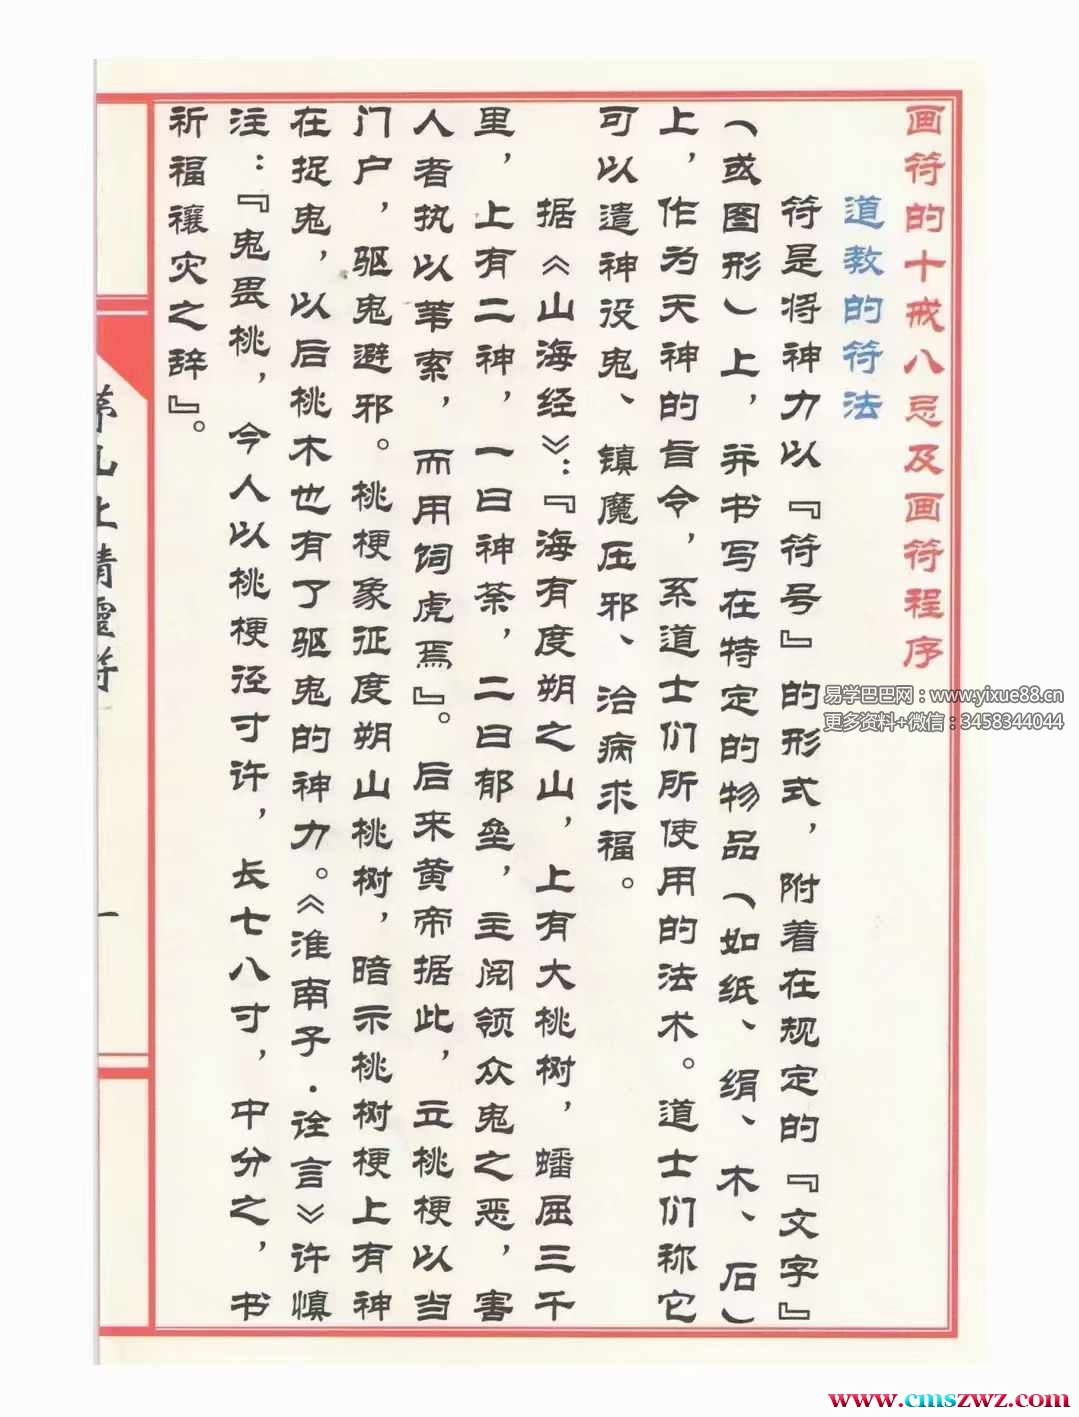 画符的十戒八忌及画符程序
道教的符法
符是将神力以『符号』的形式，附着在规定的『文字』
（或图形）上，并书写在特定的物品（如纸、绢、木、石）
上，作为天神的旨令，系道士们所使用的法术。道士们称它
可以遣神役鬼、镇魔压邪、治病求福。
据《山海经》：『海有度朔之山，上有大桃树，蟠屈三千
里，上有二神，一曰神荼，二曰郁垒，主阅领众鬼之恶，害
人者执以苇索，而用饲虎焉』。后来黄帝据此，立桃梗以当
门户，驱鬼避邪。桃梗象征度朔山桃树，暗示桃树梗上有神
在捉鬼，以后桃木也有了驱鬼的神力。《淮南子·诠言》许慎
注：『鬼畏桃，今人以桃梗径寸许，长七八寸，中分之，书
祈福禳灾之辞』。
茅山上清灵符
一
易学巴巴网：www.yixue88.cn
更多资料+微信：3458344044
www.cmszwz.com